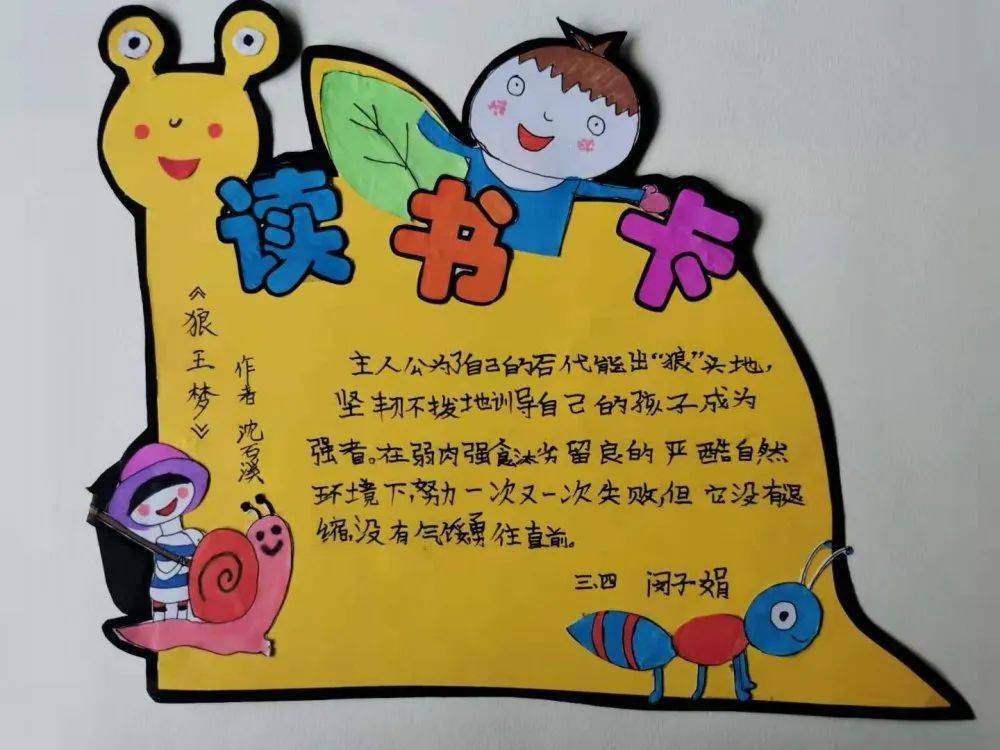 读书卡
《狼王梦》
作者 沈石溪
主人公为了自己的后代能出“狼”头地，
坚韧不拨地训导自己的孩子成为
强者。在弱肉强食汰劣留良的严酷自然
环境下，努力一次又一次失败，但它没有退
缩，没有气馁勇往直前。
三.四 闵子娟